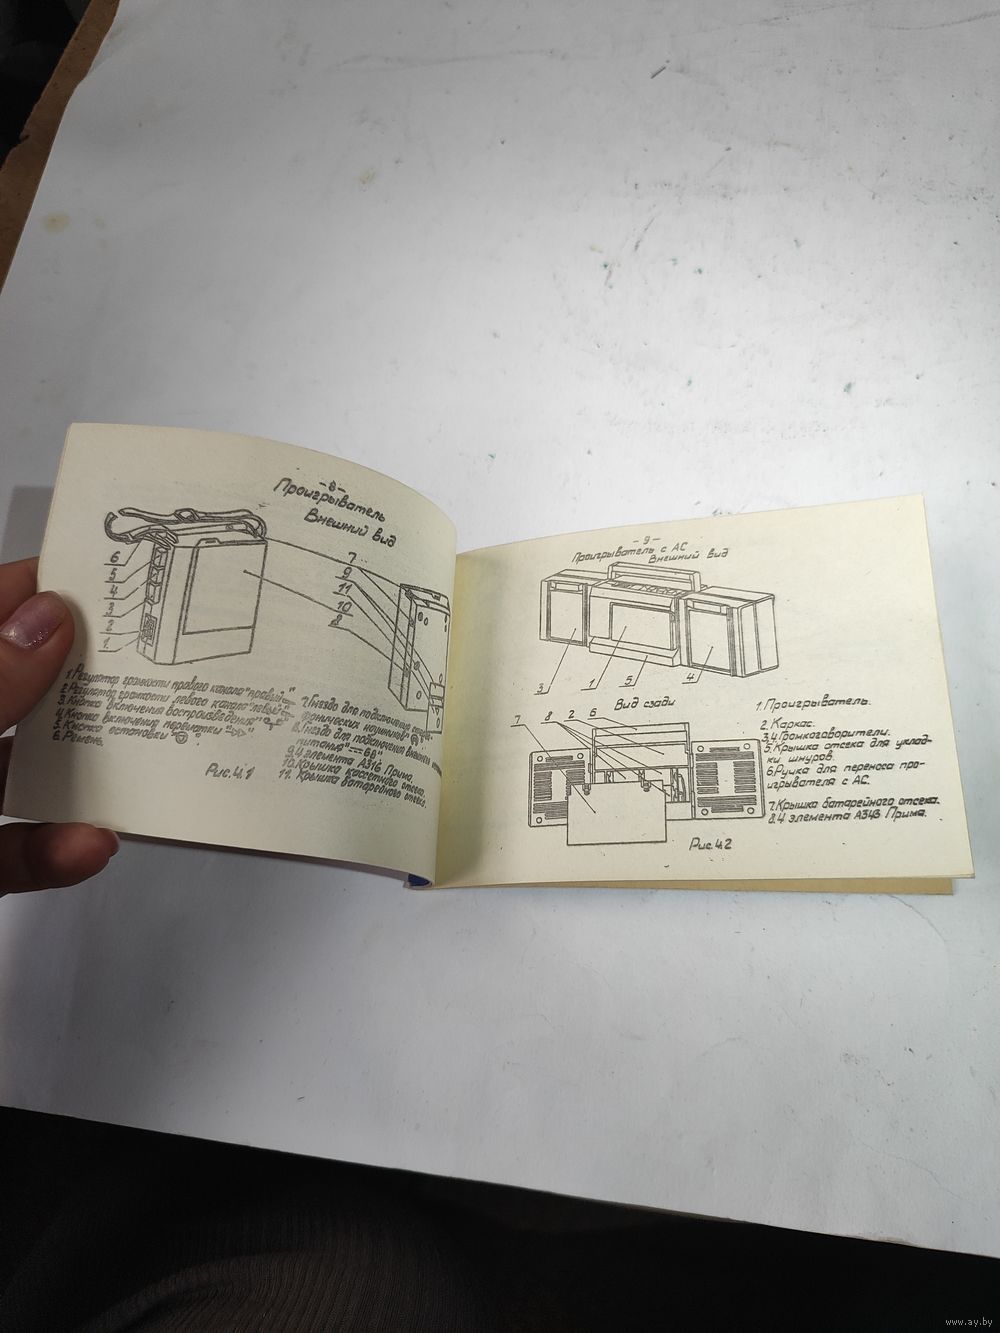 -8-
Проигрыватель
Внешний вид
6
5
4
3
2
1
7
9
11
10
8
1.Регулятор громкости правого канала "правый"
2.Регулятор громкости левого канала "левый"
3.Кнопка включения воспроизведения
4.Кнопка включения перемотки "▷▷"
5.Кнопка остановки
6.Ремень.
7.Гнездо для подключения
8.Гнездо для подключения внешнего
питания
9.4 элемента А316 Прима.
10.Крышка кассетного отсека.
11. Крышка батарейного отсека.
Рис.4.1
-9-
Проигрыватель с АС
Внешний вид
3
1
5
4
Вид сзади
7
8
2
6
1.Проигрыватель.
2.Каркас.
3,4.Громкоговорители.
5.Крышка отсека для уклад-
ки шнуров.
6.Ручка для переноса про-
игрывателя с АС.
7.Крышка батарейного отсека.
8.4 элемента А343 Прима.
Рис.4.2
www.ay.by